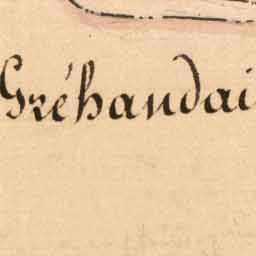 Gréhandai